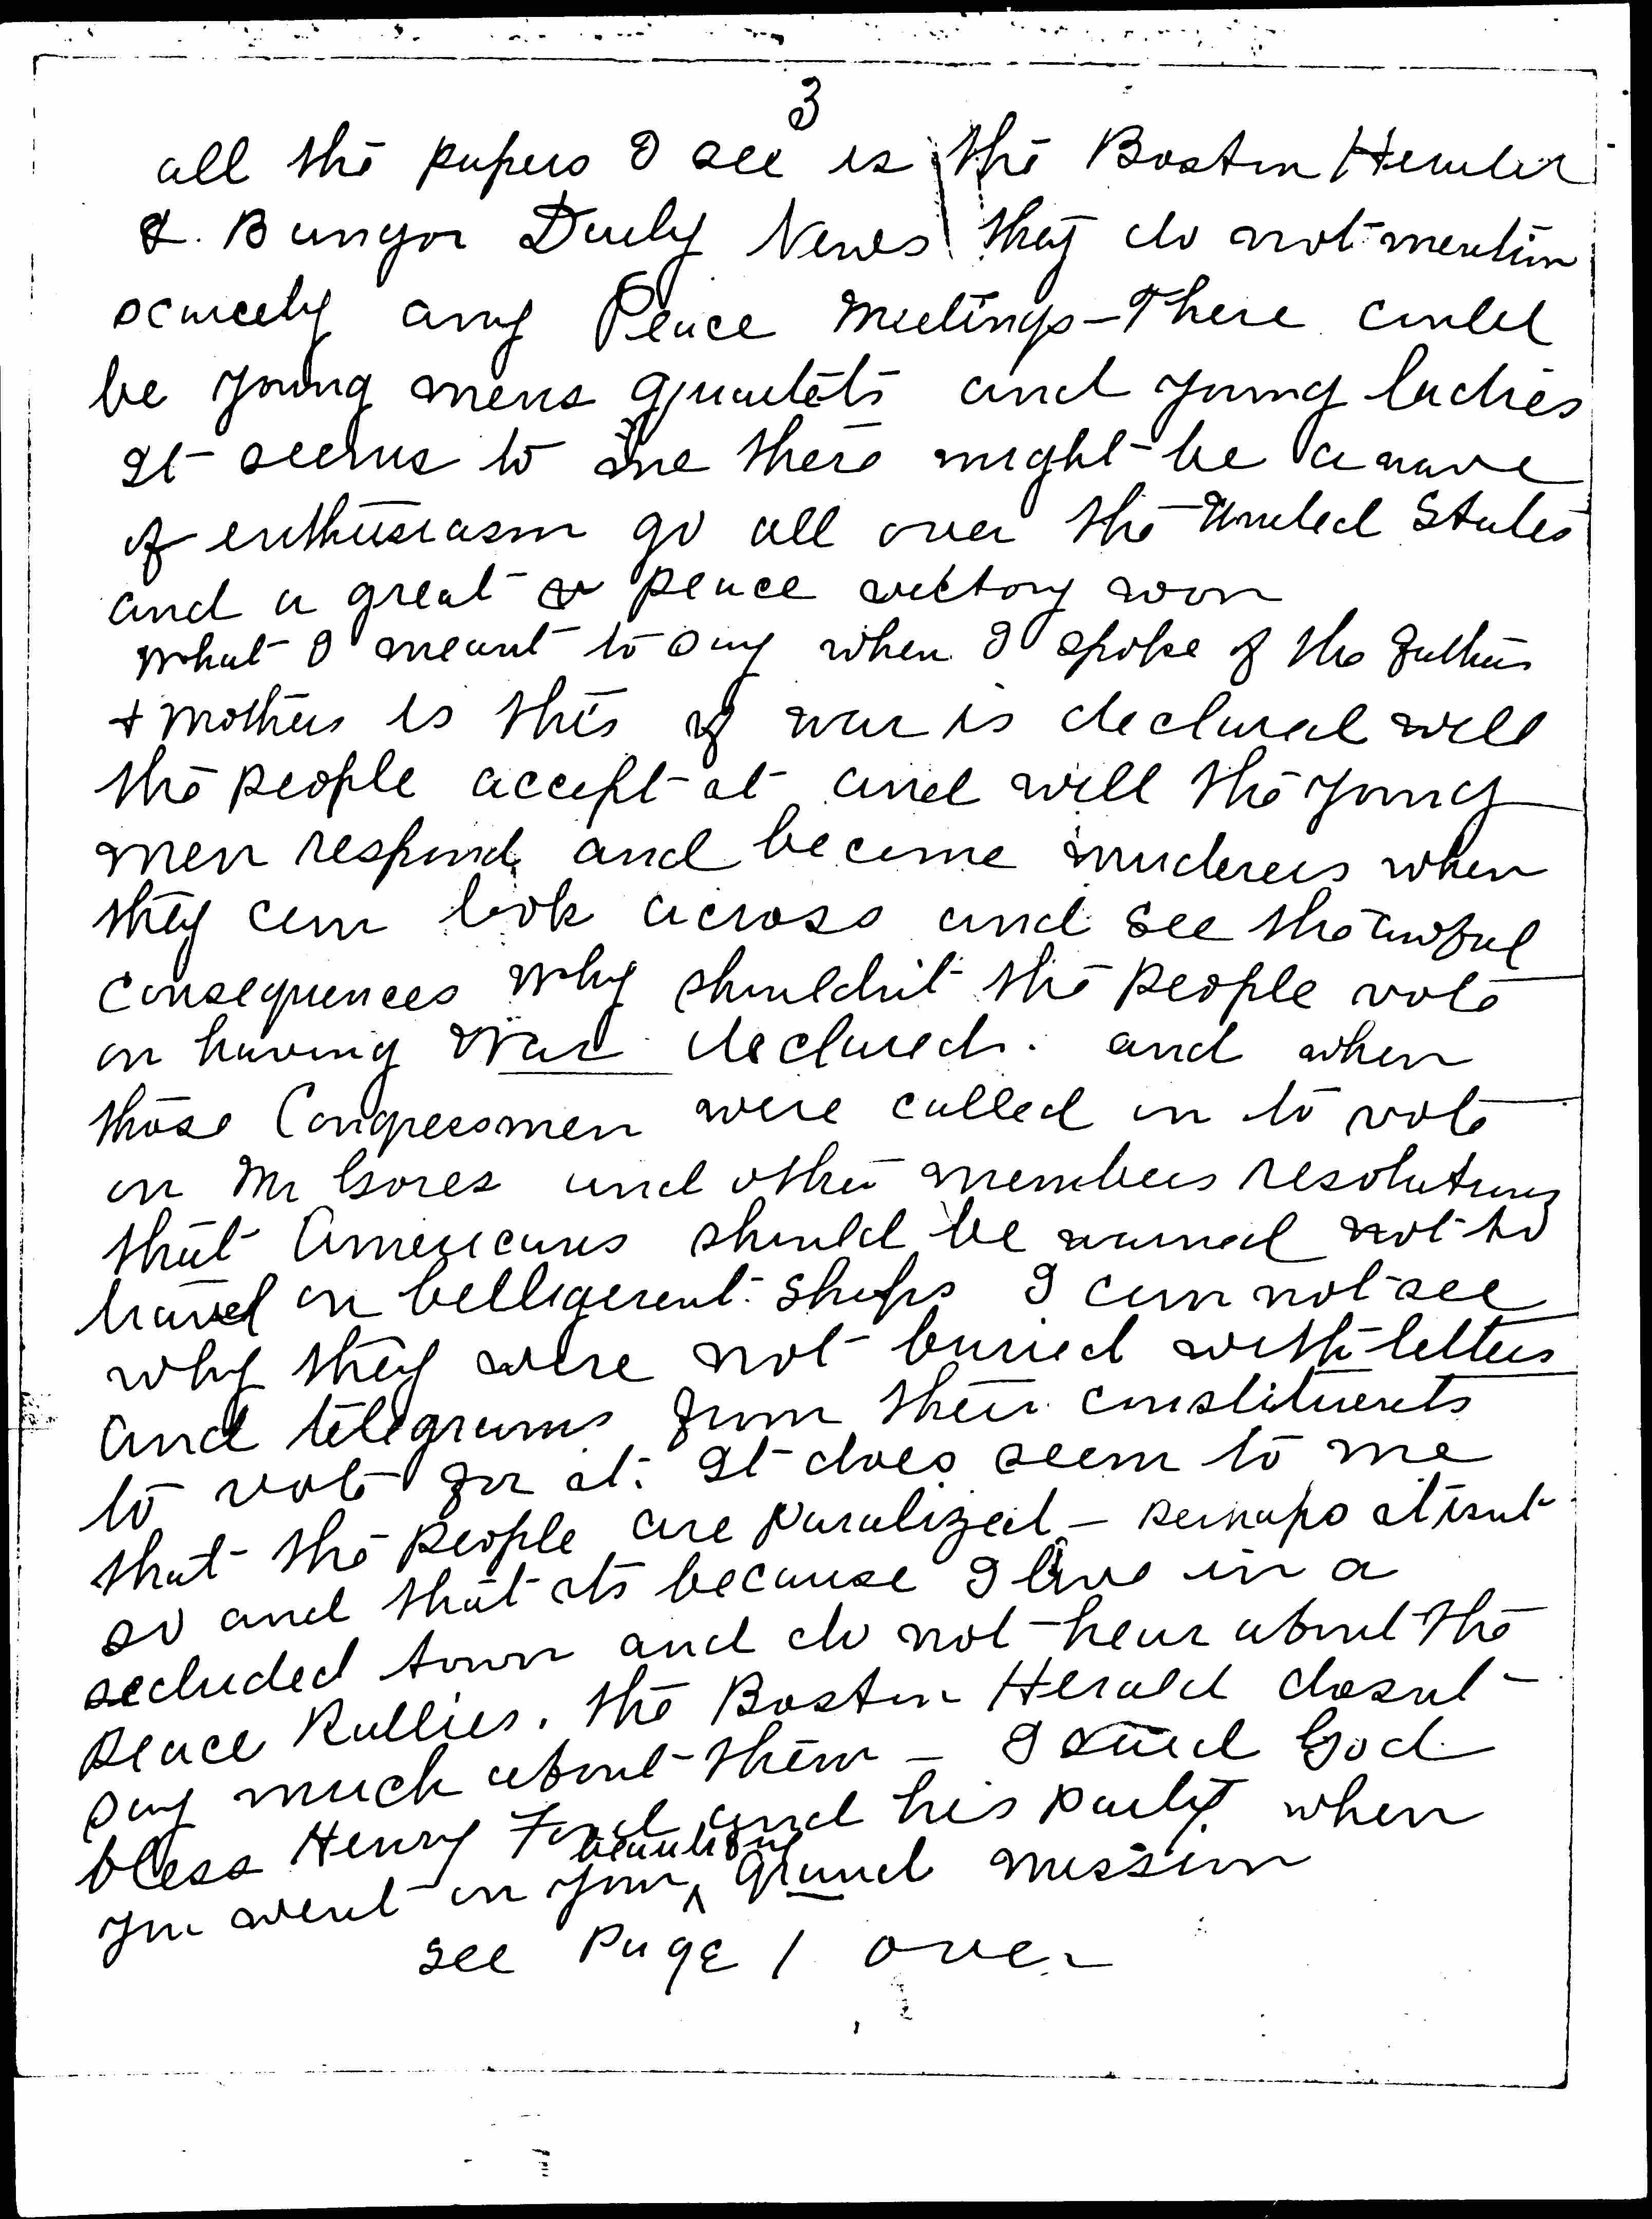 3
all the papers I see is the Boston Herald
& Bangor Daily News they do not mention
scarcely any Peace Meetings - There could
be young mens quartets and young ladies
It seems to me there might be a wave
of enthusiasm go all over the United States
and a great peace victory won
What I meant to say when I spoke of the Fathers
+ Mothers is this if war is declared will
the people accept it and will the young
men respond and become murderers when
they can look across and see the awful
consequences Why shouldn't the people vote
on having War declared. and when
those Congressmen were called on to vote
on Mr Gores and other members resolutions
that Americans should be warned not to
travel on belligerent ships I can not see
why they were not buried with letters
and telegrams from their constituents
to vote for it. It does seem to me
that the people are paralized - perhaps it isnt
so and that its because I live in a
secluded town and do not hear about the
Peace Rallies. the Boston Herald dosnt
say much about them - I said God
bless Henry Ford and his party when
you went on your beautiful grand mission
see Page 1 over